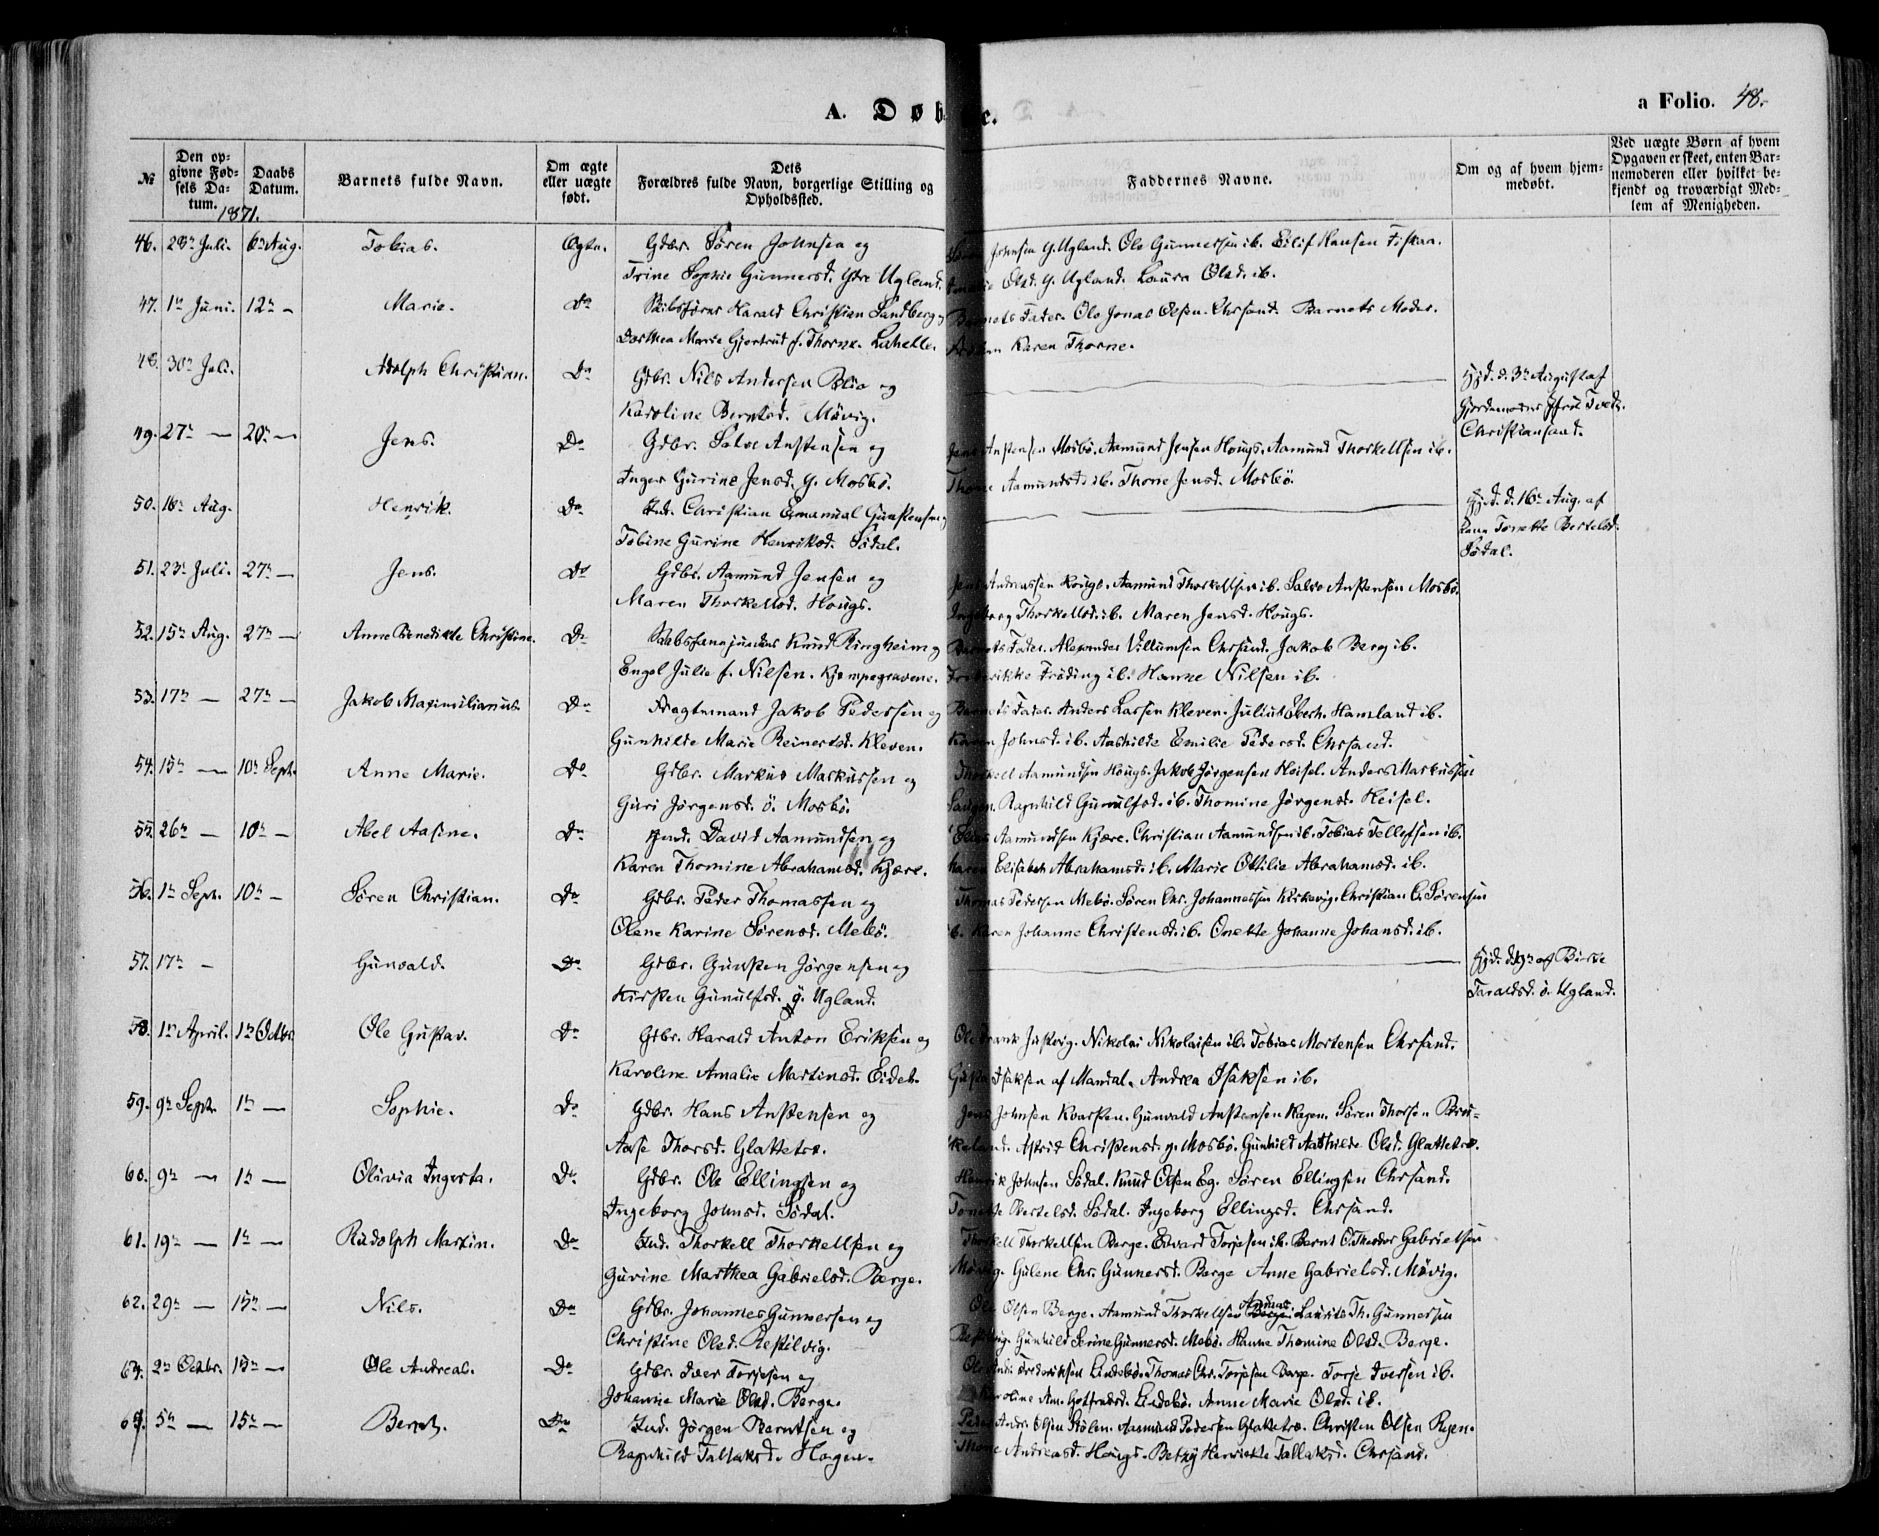 A. Døb e.
a Folio. 48.
№
Den opgivne Fødsels Datum.
Daabs Datum.
Barnets fulde Navn.
Om ægte eller uægte født.
Dets Forældres fulde Navn, borgerlige Stilling og Opholdssted.
Faddernes Navne.
Om og af hvem hjemmedøbt.
Ved uægte Børn af hvem Opgaven er skeet, enten Barnemoderen eller hvilket bekjendt og troværdigt Medlem af Menigheden.
1871.
46. 28n Juli. 6n Aug. Tobias. Ægte. Gdbr. Søren Johnsen og Johnsen y. Ugland. Ole Gunnersen ib. Eilif Hansen Fiskaa.
Trine Sophie Gunnersd. Ydre Ugland. Olsd. y. Ugland. Laura Olsd. ib.
47. 1n Juni. 12n — Marie. Do Skibsfører Harald Christian Sandberg og Barnets Fader. Ole Jonas Olsen. Chrsand. Barnets Moder.
Dorthea Marie Gjertrud f. Thorne. Lahelle. Karen Thorne.
48. 30n Juli. Adolph Christian. Do Gdbr. Nils Andersen Bolia og Hjd. d. 3n August af
Karoline Berntsd. Møvig. Gjordemoder Tvedt.
49. 27n — 20n — Jens. Do Gdbr. Salve Anstensen og Jens Anstensen Mosbø. Aamund Jensen Hougs. Aamund Thorkellsen ib. Christiansand.
Inger Gurine Jensd. y. Mosbø. Thone Aamundsd. ib. Thone Jensd. Mosbø.
50. 16n Aug. Henrik. Do Ind. Christian Emanuel Gunstensen og Hjd. d. 16n Aug. af
Tobine Gurine Henriksd. Sødal. Tonette Bertelsd. Sødal.
51. 23n Juli. 27n — Jens. Do Gdbr. Aamund Jensen og Jens Andreassen Hougs. Aamund Thorkellsen ib. Salve Anstensen Mosbø.
Maren Thorkellsd. Hougs. Ingeborg Thorkellsd. ib. Maren Jensd. Hougs.
52. 15n Aug. 27n — Anne Benedikte Christine. Do Knud Ringheim og Barnets Fader. Alexander Villumsen Chrsand. Jakob Berg ib.
Engel Julie f. Nilsen. Kjempegravene. Frederikke Frøding ib. Hanne Nilsen ib.
53. 17n — 27n — Jakob Maximilianus. Do Fragtemand Jakob Pedersen og Barnets Fader. Anders Larsen Kleven. Julius Hansland ib.
Gunhilde Marie Reinertsd. Kleven. Karen Johnsd. ib. Aashilde Emilie Pedersd. Chrsand.
54. 15n — 10n Sept. Anne Marie. Do Gdbr. Markus Markussen og Thorkell Aamundsen Hougs. Jakob Jørgensen Heisel. Anders Markussen
Guri Jørgensd. ø. Mosbø. Ragnhild Gunulfsd. ib. Thomine Jørgensd. Heisel.
55. 26n — 10n — Abel Aasine. Do David Aamundsen og Elias Aamundsen Kjære. Christian Aamundsen ib. Tobias Tellefsen ib.
Karen Thomine Abrahamsd. Kjære. Karen Elisabeth Abrahamsd. ib. Marie Ottilie Abrahamsd. ib.
56. 1n Sept. 10n — Søren Christian. Do Gdbr. Peder Thomassen og Thomas Pedersen Mebø. Søren Chr. Johannessen Kirkevig. Christian O. Sørensen
Olene Karine Sørensd. Mebø. ib. Karen Johanne Christensd. ib. Onette Johanne Johansd. ib.
57. 17n — Gunvald. Do Gdbr. Gunsten Jørgensen og Hjd. d. 19n af Birte
Kirsten Gunulfsd. y. Ugland. Taraldsd. ø. Ugland.
58. 1n April. 1n Octbr. Ole Gustav. Do Gdbr. Harald Anton Eriksen og Ole Frank Justvig. Nikolai Nikolaisen ib. Tobias Mortensen Chrsand.
Karoline Amalie Martinsd. Eidet. Gusta Isaksen af Mandal. Andrea Isaksen ib.
59. 9n Sept. 1n — Sophie. Do Gdbr. Hans Anstensen og Jens Johnsen Kvarsten. Gunvald Anstensen Hagen. Søren Thorsen Birkeland.
Aase Thorsd. Glattetre. Astrid Christensd. y. Mosbø. Gunhild Aashilde Olsd. Glattetre.
60. 9n — 1n — Olivia Ingerta. Do Gdbr. Ole Ellingsen og Henrik Johnsen Sødal. Knud Olsen Eg. Søren Ellingsen Chrsand.
Ingeborg Johnsd. Sødal. Tonette Bertelsd. Sødal. Ingeborg Ellingsd. Chrsand.
61. 19n — 1n — Rudolph Martin. Do Ind. Thorkell Thorkellsen og Thorkell Thorkellsen Berge. Edvard Torjesen ib. Bernt O. Theodor Gabrielsen
Gurine Marthea Gabrielsd. Berge. Møvig. Gulene Chr. Gunnersd. Berge Anne Gabrielsd. Møvig.
62. 29n — 15n — Nils. Do Gdbr. Johannes Gunnersen og Ole Olsen Berge. Aamund Thorkellsen Laurits Th. Gunnersen
Christine Olsd. Restelvig. Gunhild Serine Gunnersd. Mebø. Hanne Thomine Olsd. Berge.
64. 2n Octbr. 15n — Ole Andreas. Do Gdbr. Iver Torjesen og Frederiksen Lindebø. Thomas Chr. Torjesen Berge. Torje Iversen ib.
Johanne Marie Olsd. Berge. Karoline Am. Gotfredsd. Lindebø. Anne Marie Olsd. ib.
65. 5n — 15n — Bernt. Do Ind. Jørgen Berntsen og Peder Andr. Olsen Stølen. Aamund Pedersen Glattetre. Christen Olsen Rejen.
Ragnhild Tallaksd. Hagen. Thone Andreasd. Hougs. Betzy Henriette Tallaksd. Chrsand.